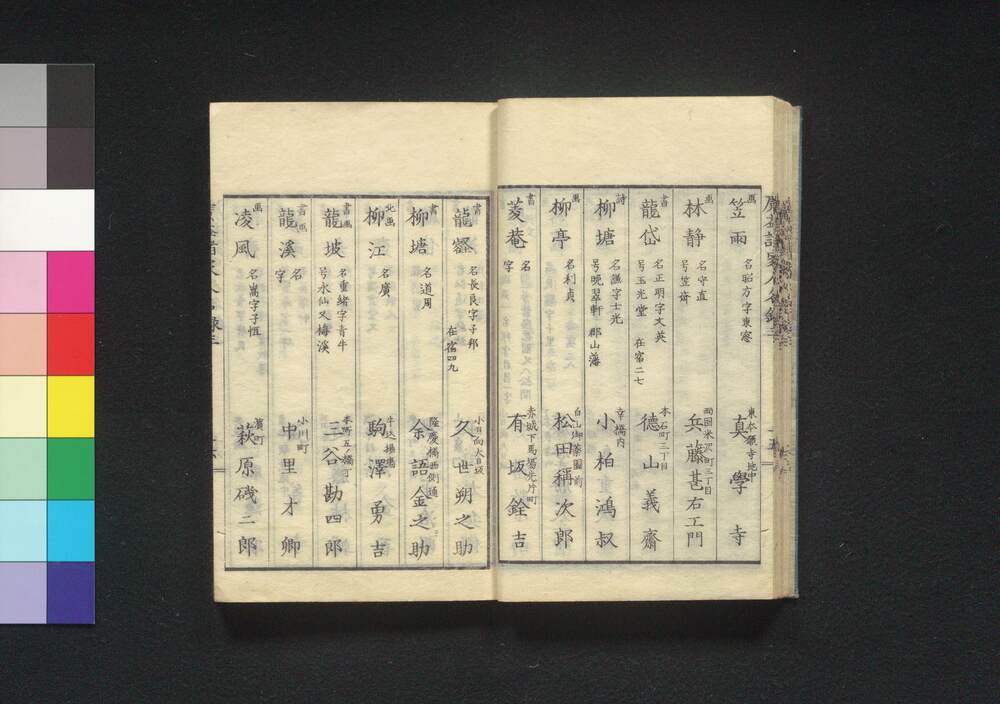 画 笠雨 名昭方字東窓 東本願寺地中 真學寺
画 林静 名守直 号笠斎 両国米沢町三丁目 兵藤甚右エ門
書 龍岱 名正明字文英 号玉光堂 在宿二七 本石町三丁目 徳山義齋
詩 柳塘 名謙字士光 号晩翠軒 郡山藩 幸橋内 小柏鴻叔
画 柳亭 名利貞 白山御薬園前 松田稱次郎
書 菱菴 名 字 赤城下馬場先片町 有坂銓吉
書 龍壑 名長良字子邦 在宿四九 小日向大日坂 久世朔之助
書 柳塘 名道周 隆慶橋西側通 余語金之助
北画 柳江 名廣 牛込揚場 駒澤勇吉
書画 龍坡 名重緒字青牛 号水仙又梅溪 本所五ノ橋丁 三谷勘四郎
書画 龍溪 名 字 小川町 中里才卿
画 凌風 名嵩字子恒 濱町 萩原磯二郎